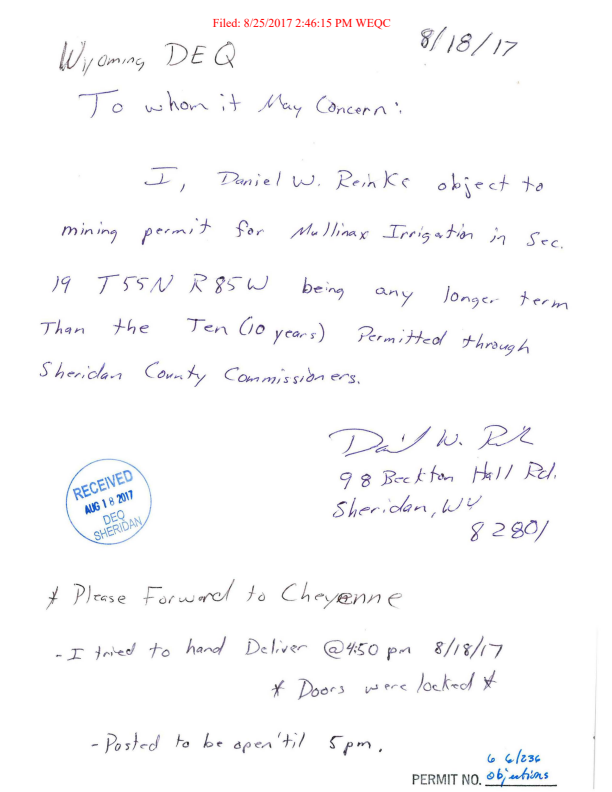 Filed: 8/25/2017 2:46:15 PM WEQC
8/18/17
Wyoming DEQ
To whom it May Concern:
I, Daniel W. Reinke object to
mining permit for Mullinax Irrigation in Sec.
19 T55N R85W being any longer term
Than the Ten (10 years) Permitted through
Sheridan County Commissioners.
Dan'l W. R
98 Beckton Hall Rd.
Sheridan, WY
82801
RECEIVED
AUG 18 2017
DEQ
SHERIDAN
* Please Forward to Cheyenne
- I tried to hand Deliver @4:50 pm 8/18/17
* Doors were locked *
- Posted to be open 'til 5pm.
6 6/236
PERMIT NO. objections